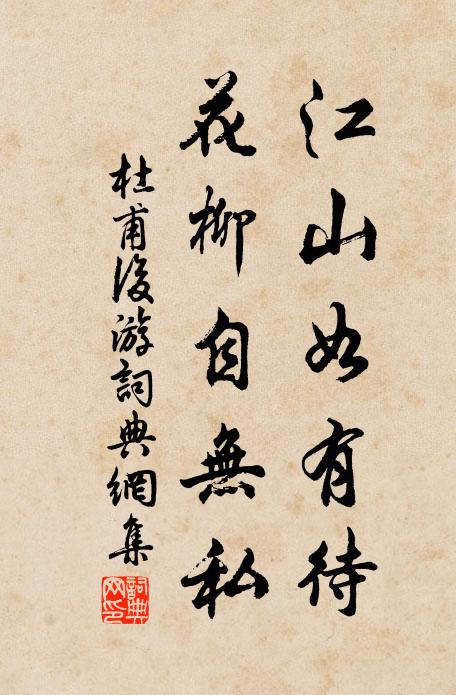 江山如有待
花柳自無私
杜甫後游詞典網集
詞典網印